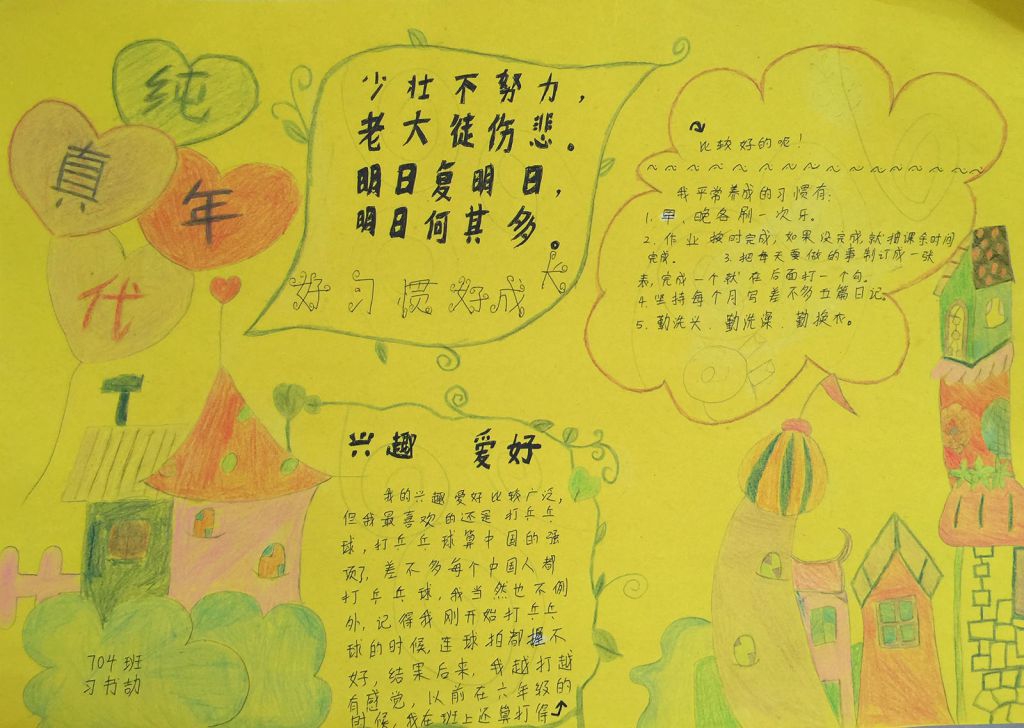 纯
真
年
代
少壮不努力,
老大徒伤悲。
明日复明日,
明日何其多。
好习惯好成长
兴趣 爱好
我的兴趣爱好比较广泛,
但我最喜欢的还是打乒乓
球,打乒乓球算中国的强
项了,差不多每个中国人都
打乒乓球,我当然也不例
外,记得我刚开始打乒乓
球的时候,连球拍都握不
好,结果后来,我越打越
有感觉,以前在六年级的
时候,我在班上还算打得
比较好的呢!
我平常养成的习惯有:
1. 早、晚各刷一次牙。
2. 作业按时完成,如果没完成,就抽课余时间
完成。 3. 把每天要做的事制订成一张
表,完成一个就在后面打一个勾。
4. 坚持每个月写差不多五篇日记。
5. 勤洗头、勤洗澡、勤换衣。
704班
习书劼